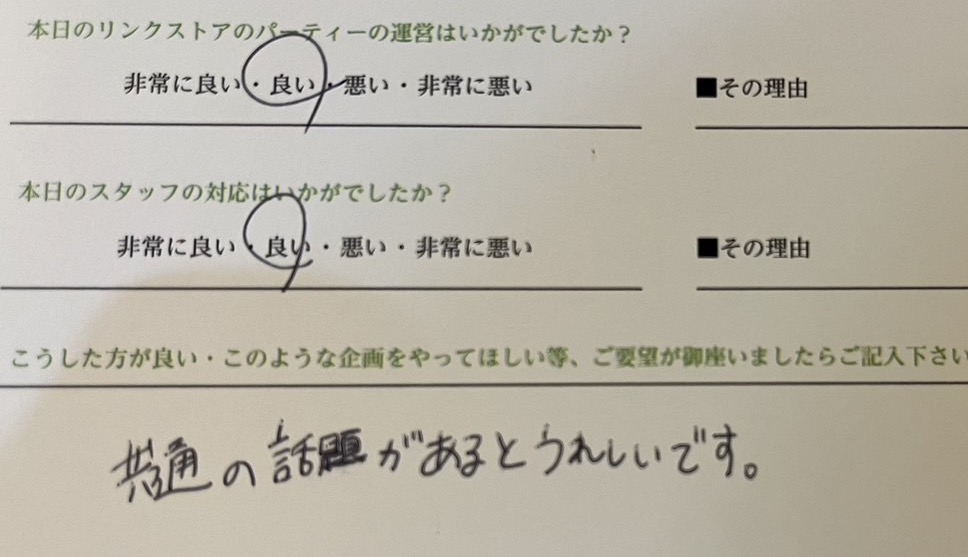 本日のリンクストアのパーティーの運営はいかがでしたか？
非常に良い・良い・悪い・非常に悪い ■その理由
本日のスタッフの対応はいかがでしたか？
非常に良い・良い・悪い・非常に悪い ■その理由
こうした方が良い・このような企画をやってほしい等、ご要望が御座いましたらご記入下さい
共通の話題があるとうれしいです。